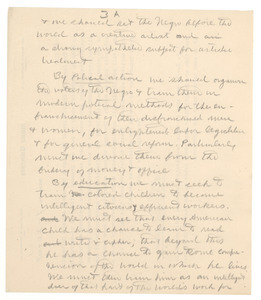 & we should set the Negro before the
world as a creative artist and in
a strong sympathetic subject for artistic
treatment
By Political action we should organize
the votes of the Negro & train them in
modern political methods for the en-
franchisement of their disfranchised men
& women, for enlightened labor legislation
& for general social reform. Particularly
must we divorce them from the
bribery of money & office.
By education we must seek to
train colored children to become
intelligent citizens & efficient workers.
We must see that every American
child has a chance to learn to read
write & cipher, that beyond this
he has a chance to gain some compre-
hension of the world in which he lives
We must then train him as an intelligent
doer of that part of the world's work for